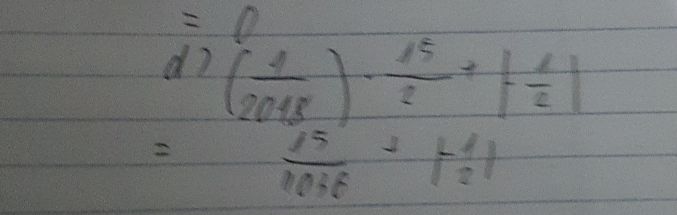 = 0
d) (1/2018) · 15/2 + |-1/2|
= 15/4036 + |-1/2|